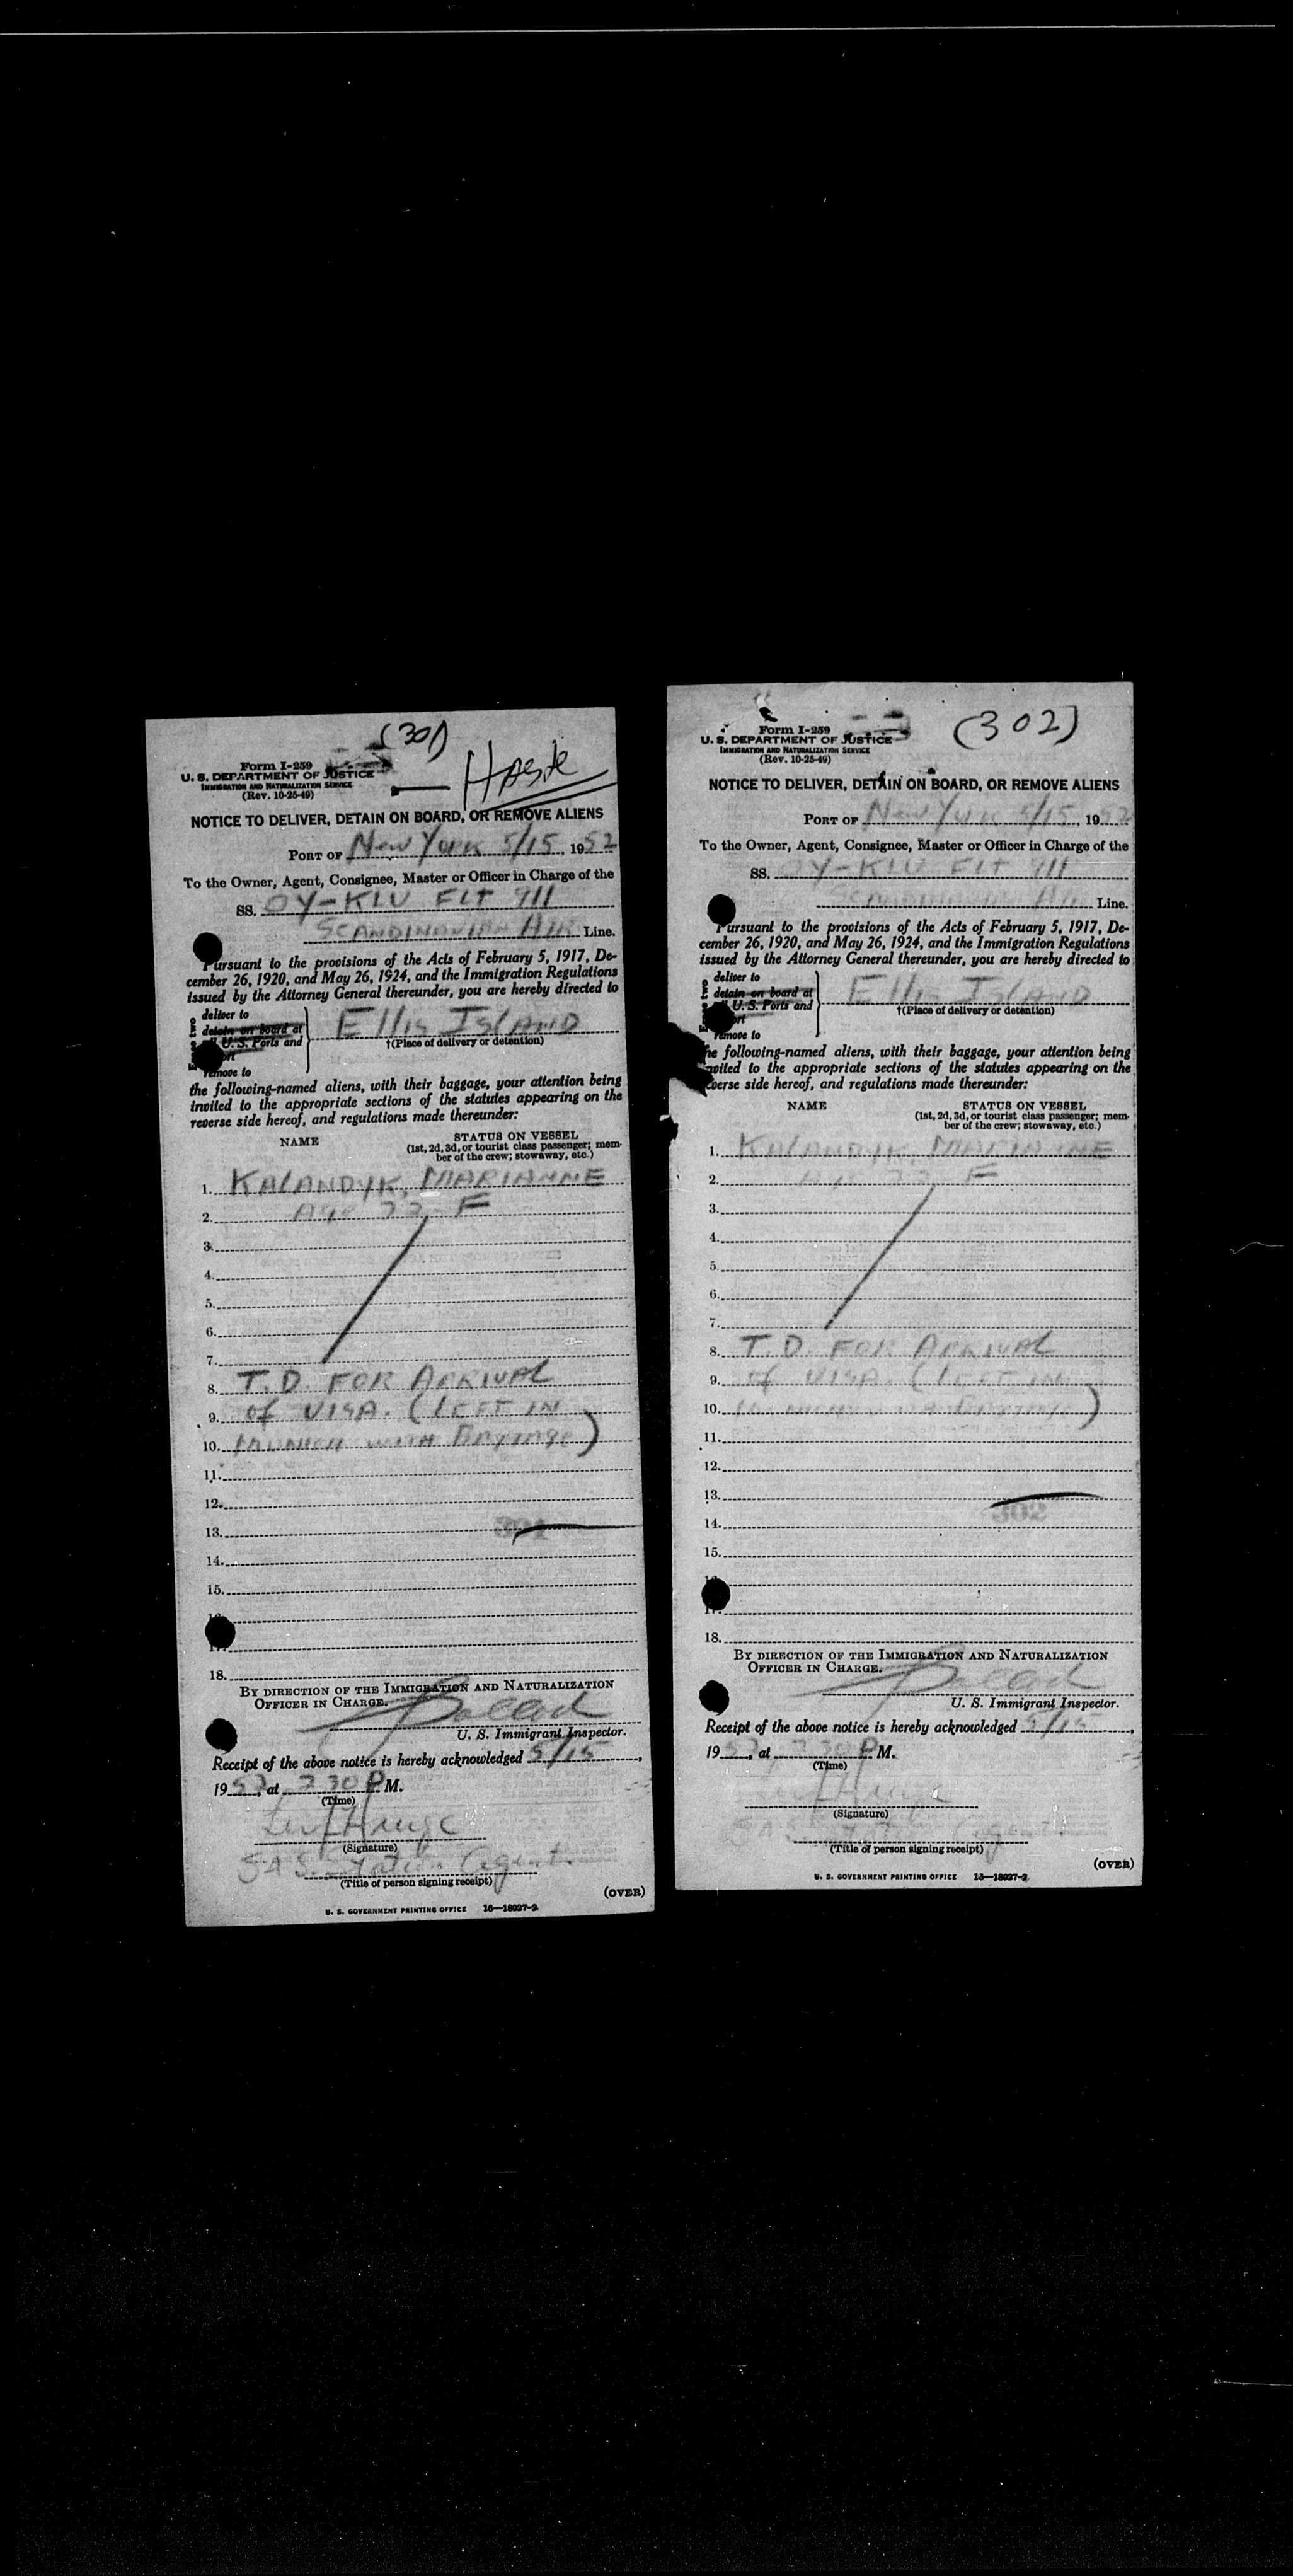 (301)
Haste
Form I-259
U. S. DEPARTMENT OF JUSTICE
IMMIGRATION AND NATURALIZATION SERVICE
(Rev. 10-25-49)
NOTICE TO DELIVER, DETAIN ON BOARD, OR REMOVE ALIENS
PORT OF New York 5/15, 1952
To the Owner, Agent, Consignee, Master or Officer in Charge of the
SS. OY-KLU FLT 911
SCANDINAVIAN AIR Line.
Pursuant to the provisions of the Acts of February 5, 1917, De-
cember 26, 1920, and May 26, 1924, and the Immigration Regulations
issued by the Attorney General thereunder, you are hereby directed to
deliver to
detain on board at
U. S. Ports and
remove to
Ellis Island
†(Place of delivery or detention)
the following-named aliens, with their baggage, your attention being
invited to the appropriate sections of the statutes appearing on the
reverse side hereof, and regulations made thereunder:
NAME
STATUS ON VESSEL
(1st, 2d, 3d, or tourist class passenger; mem-
ber of the crew; stowaway, etc.)
1. KALANDYK, MARIANNE
2. Age 33 F
3.
4.
5.
6.
7.
8. T.D. FOR ARRIVAL
9. of VISA. (LEFT IN
10. MUNICH WITH )
11.
12.
13.
301
14.
15.
18.
BY DIRECTION OF THE IMMIGRATION AND NATURALIZATION
OFFICER IN CHARGE.
U. S. Immigrant Inspector.
Receipt of the above notice is hereby acknowledged 5/15,
1952, at 7 30 P M.
(Time)
(Signature)
SAS Station Agent.
(Title of person signing receipt)
(OVER)
U. S. GOVERNMENT PRINTING OFFICE 16—18027-2
(302)
Form I-259
U. S. DEPARTMENT OF JUSTICE
IMMIGRATION AND NATURALIZATION SERVICE
(Rev. 10-25-49)
NOTICE TO DELIVER, DETAIN ON BOARD, OR REMOVE ALIENS
PORT OF New York 5/15, 1952
To the Owner, Agent, Consignee, Master or Officer in Charge of the
SS. OY-KLU FLT 911
SCANDINAVIAN AIR Line.
Pursuant to the provisions of the Acts of February 5, 1917, De-
cember 26, 1920, and May 26, 1924, and the Immigration Regulations
issued by the Attorney General thereunder, you are hereby directed to
deliver to
detain on board at
U. S. Ports and
remove to
Ellis Island
†(Place of delivery or detention)
the following-named aliens, with their baggage, your attention being
invited to the appropriate sections of the statutes appearing on the
reverse side hereof, and regulations made thereunder:
NAME
STATUS ON VESSEL
(1st, 2d, 3d, or tourist class passenger; mem-
ber of the crew; stowaway, etc.)
1. KALANDYK, MARIANNE
2. Age 33 F
3.
4.
5.
6.
7.
8. T.D. FOR ARRIVAL
9. of VISA. (LEFT IN
10. MUNICH WITH )
11.
12.
13.
302
14.
15.
18.
BY DIRECTION OF THE IMMIGRATION AND NATURALIZATION
OFFICER IN CHARGE.
U. S. Immigrant Inspector.
Receipt of the above notice is hereby acknowledged 5/15,
1952, at 7 30 P M.
(Time)
(Signature)
SAS Station Agent.
(Title of person signing receipt)
(OVER)
U. S. GOVERNMENT PRINTING OFFICE 16—18027-2